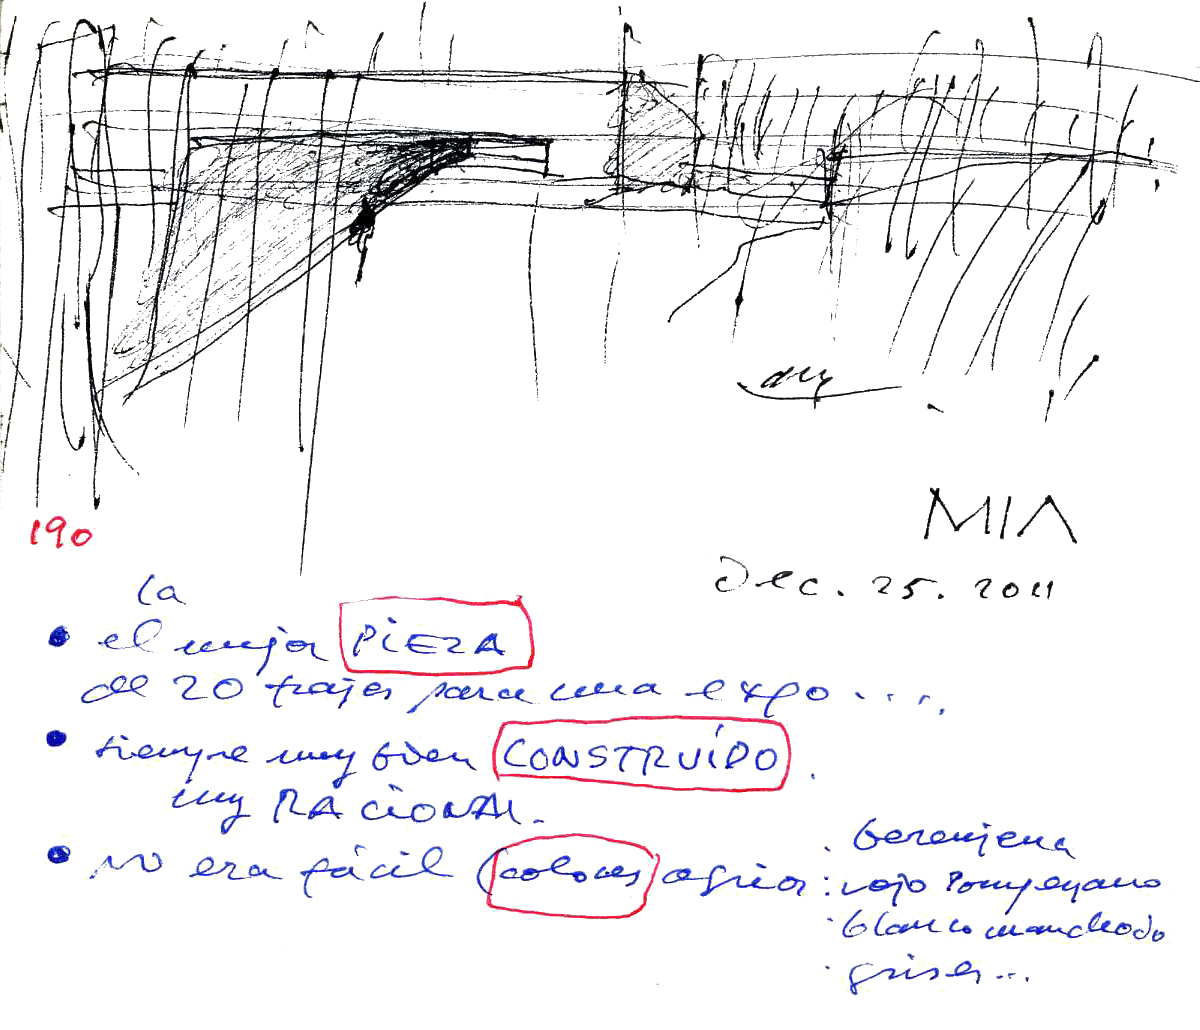 MIA
Dec. 25. 2011
190
la
• el mejor PIEZA
de 20 trajes para una expo . . . .
• siempre muy bien CONSTRUÍDO .
muy RACIONAL.
• no era fácil (colores) agrios :
. berenjena
. rojo Pompeyano
. blanco manchado
. grises...